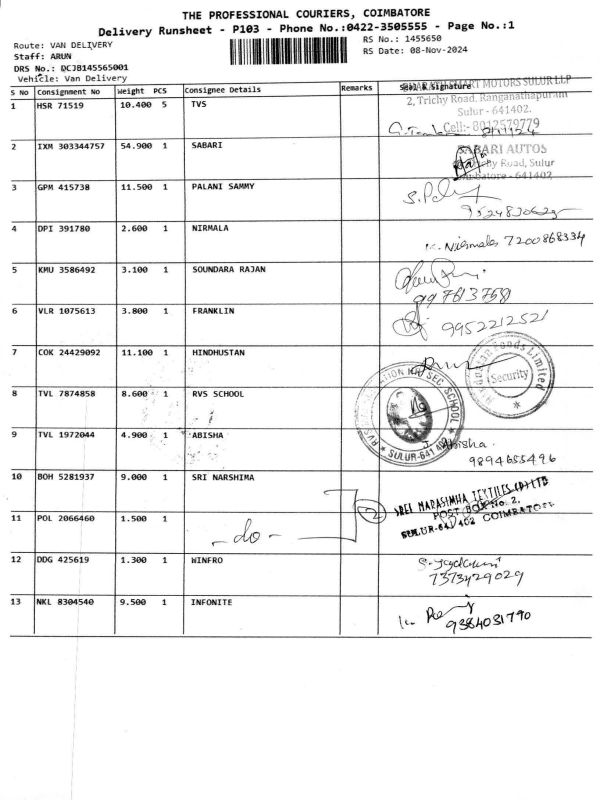 THE PROFESSIONAL COURIERS, COIMBATORE
Delivery Runsheet - P103 - Phone No.:0422-3505555 - Page No.:1
Route: VAN DELIVERY
RS No.: 1455650
Staff: ARUN
RS Date: 08-Nov-2024
DRS No.: DCJB145565001
Vehicle: Van Delivery
S No Consignment No Weight PCS Consignee Details Remarks Seal & Signature
BHARATH SMART MOTORS SULUR LLP
1 HSR 71519 10.400 5 TVS
2, Trichy Road, Ranganathapuram
Sulur - 641402.
Cell:- 8012579779
2 IXM 303344757 54.900 1 SABARI
SABARI AUTOS
Road, Sulur
641402
3 GPM 415738 11.500 1 PALANI SAMMY
4 DPI 391780 2.600 1 NIRMALA
Nirmala 7200868334
5 KMU 3586492 3.100 1 SOUNDARA RAJAN
6 VLR 1075613 3.800 1 FRANKLIN
9952212521
7 COK 24429092 11.100 1 HINDHUSTAN
Foods Limited
Security
8 TVL 7874858 8.600 1 RVS SCHOOL
SEC. SCHOOL
SULUR-641
9 TVL 1972044 4.900 1 ABISHA
J. Abisha.
9894655496
10 BOH 5281937 9.000 1 SRI NARSHIMA
2
SREE NARASIMHA TEXTILES (P) LTD
POST BOX No. 2.
SULUR-641 402 COIMBATORE
11 POL 2066460 1.500 1
-do-
12 DDG 425619 1.300 1 WINFRO
7373429029
13 NKL 8304540 9.500 1 INFONITE
9384031790